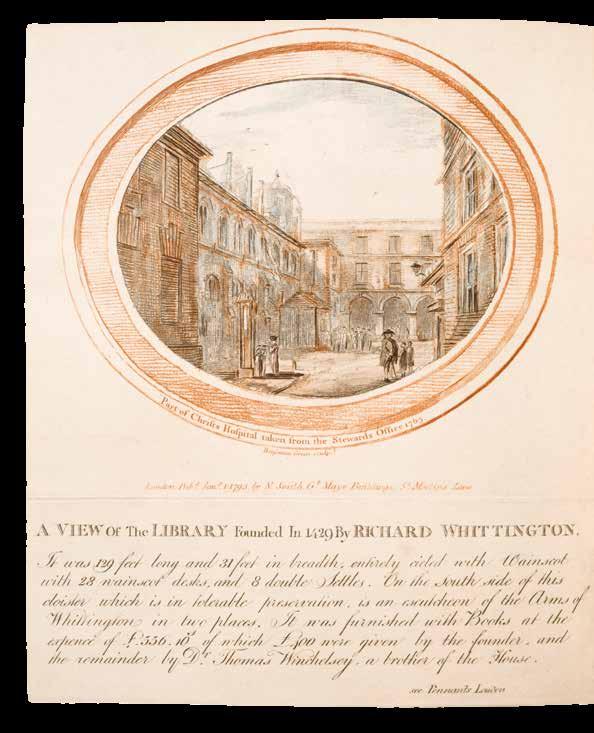 Part of Christs Hospital taken from the Stewards Office 1765.
Benjamin Green sculpt.
London Pub.d Jan.y 1 1793, by N. Smith G.t Mays Buildings, S.t Martins Lane
A VIEW Of The LIBRARY Founded In 1429 By RICHARD WHITTINGTON.
It was 129 feet long and 31 feet in breadth, entirely cieled with Wainscot
with 28 wainscot desks, and 8 double Settles. On the south side of this
cloister which is in tolerable preservation, is an escutcheon of the Arms of
Whittington in two places. It was furnished with Books at the
expence of £.556. 10.s of which £400 were given by the founder, and
the remainder by D.r Thomas Winchelsey, a brother of the House.
see Pennants London